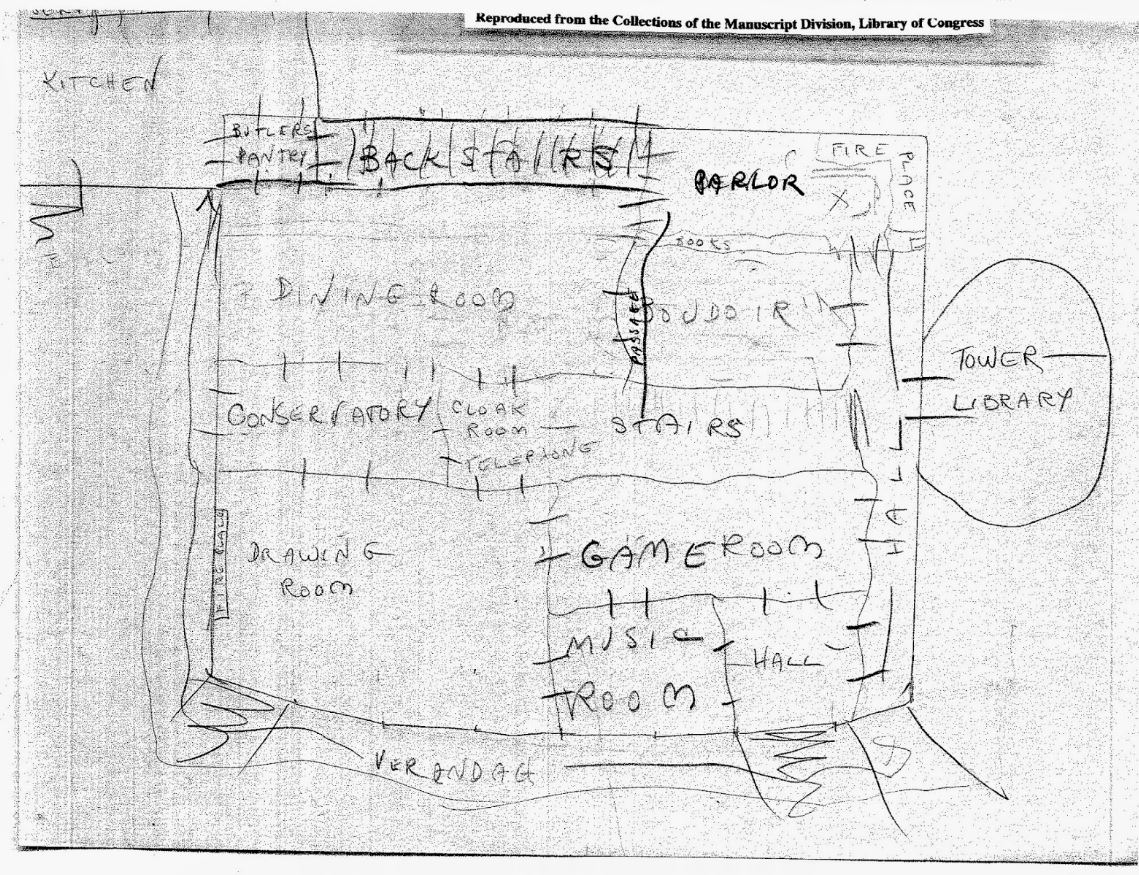 Reproduced from the Collections of the Manuscript Division, Library of Congress
KITCHEN
BUTLERS
PANTRY
BACK STAIRS
PARLOR
FIRE
PLACE
X
BOOKS
DINING ROOM
PASSAGE
BOUDOIR
TOWER
LIBRARY
CONSERVATORY
CLOAK
ROOM
TELEPHONE
STAIRS
HALL
FIRE PLACE
DRAWING
ROOM
GAME ROOM
MUSIC
ROOM
HALL
VERANDAH